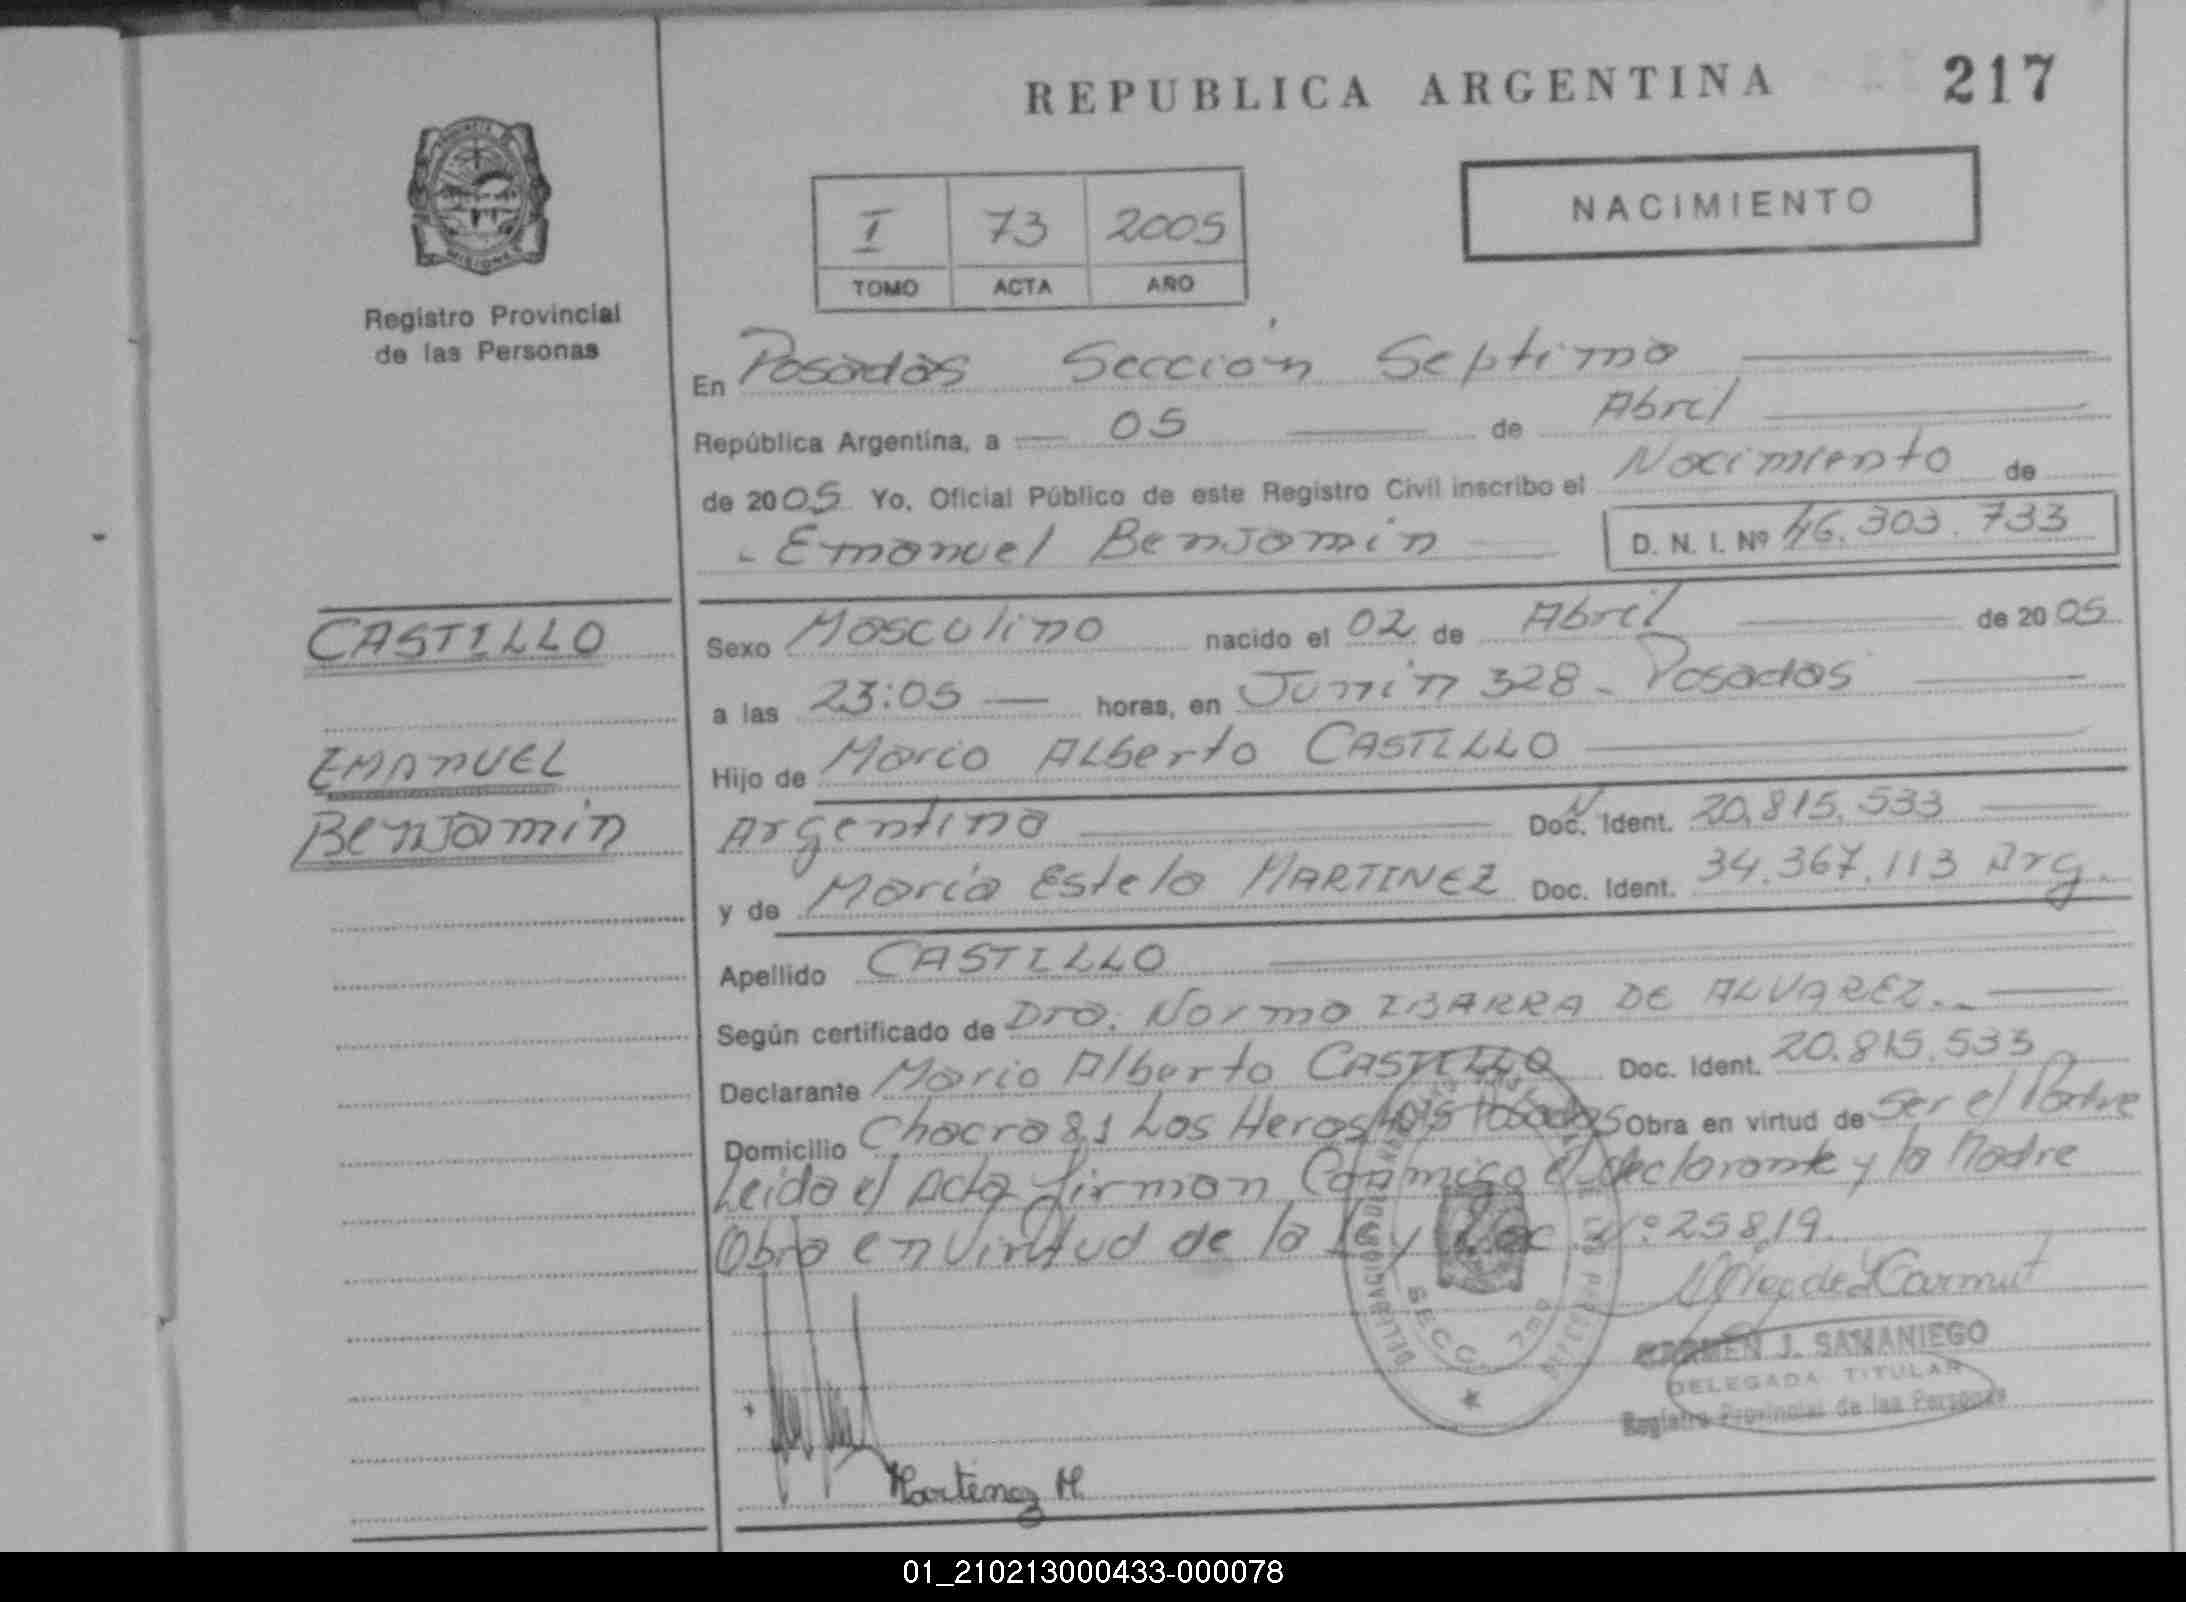 REPUBLICA ARGENTINA 217
PROVINCIA
MISIONES
Registro Provincial
de las Personas
I 73 2005
TOMO ACTA AÑO
NACIMIENTO
En Posadas Sección Septima
República Argentina, a 05 de Abril
de 2005 Yo, Oficial Público de este Registro Civil inscribo el Nacimiento de
- Emanuel Benjamin D. N. I. Nº 46.303.733
CASTILLO
EMANUEL
Benjamin
Sexo Masculino nacido el 02 de Abril de 2005
a las 23:05 horas, en Junin 328 - Posadas
Hijo de Mario Alberto CASTILLO
Argentino Doc. Ident. 20.815.533
y de María Estela MARTINEZ Doc. Ident. 34.367.113 Arg.
Apellido CASTILLO
Según certificado de Dra. Norma IBARRA DE ALVAREZ.-
Declarante Mario Alberto CASTILLO Doc. Ident. 20.815.533
Domicilio Chacra 81 Las Heras Posadas Obra en virtud de Ser el Padre
Leida el Acta firman Conmigo el declarante y la Madre
Obra en virtud de la Ley Nº 25819.
SECC. 7ma
CARMEN J. SAMANIEGO
DELEGADA TITULAR
Registro Provincial de las Personas
Martinez M.
01_210213000433-000078